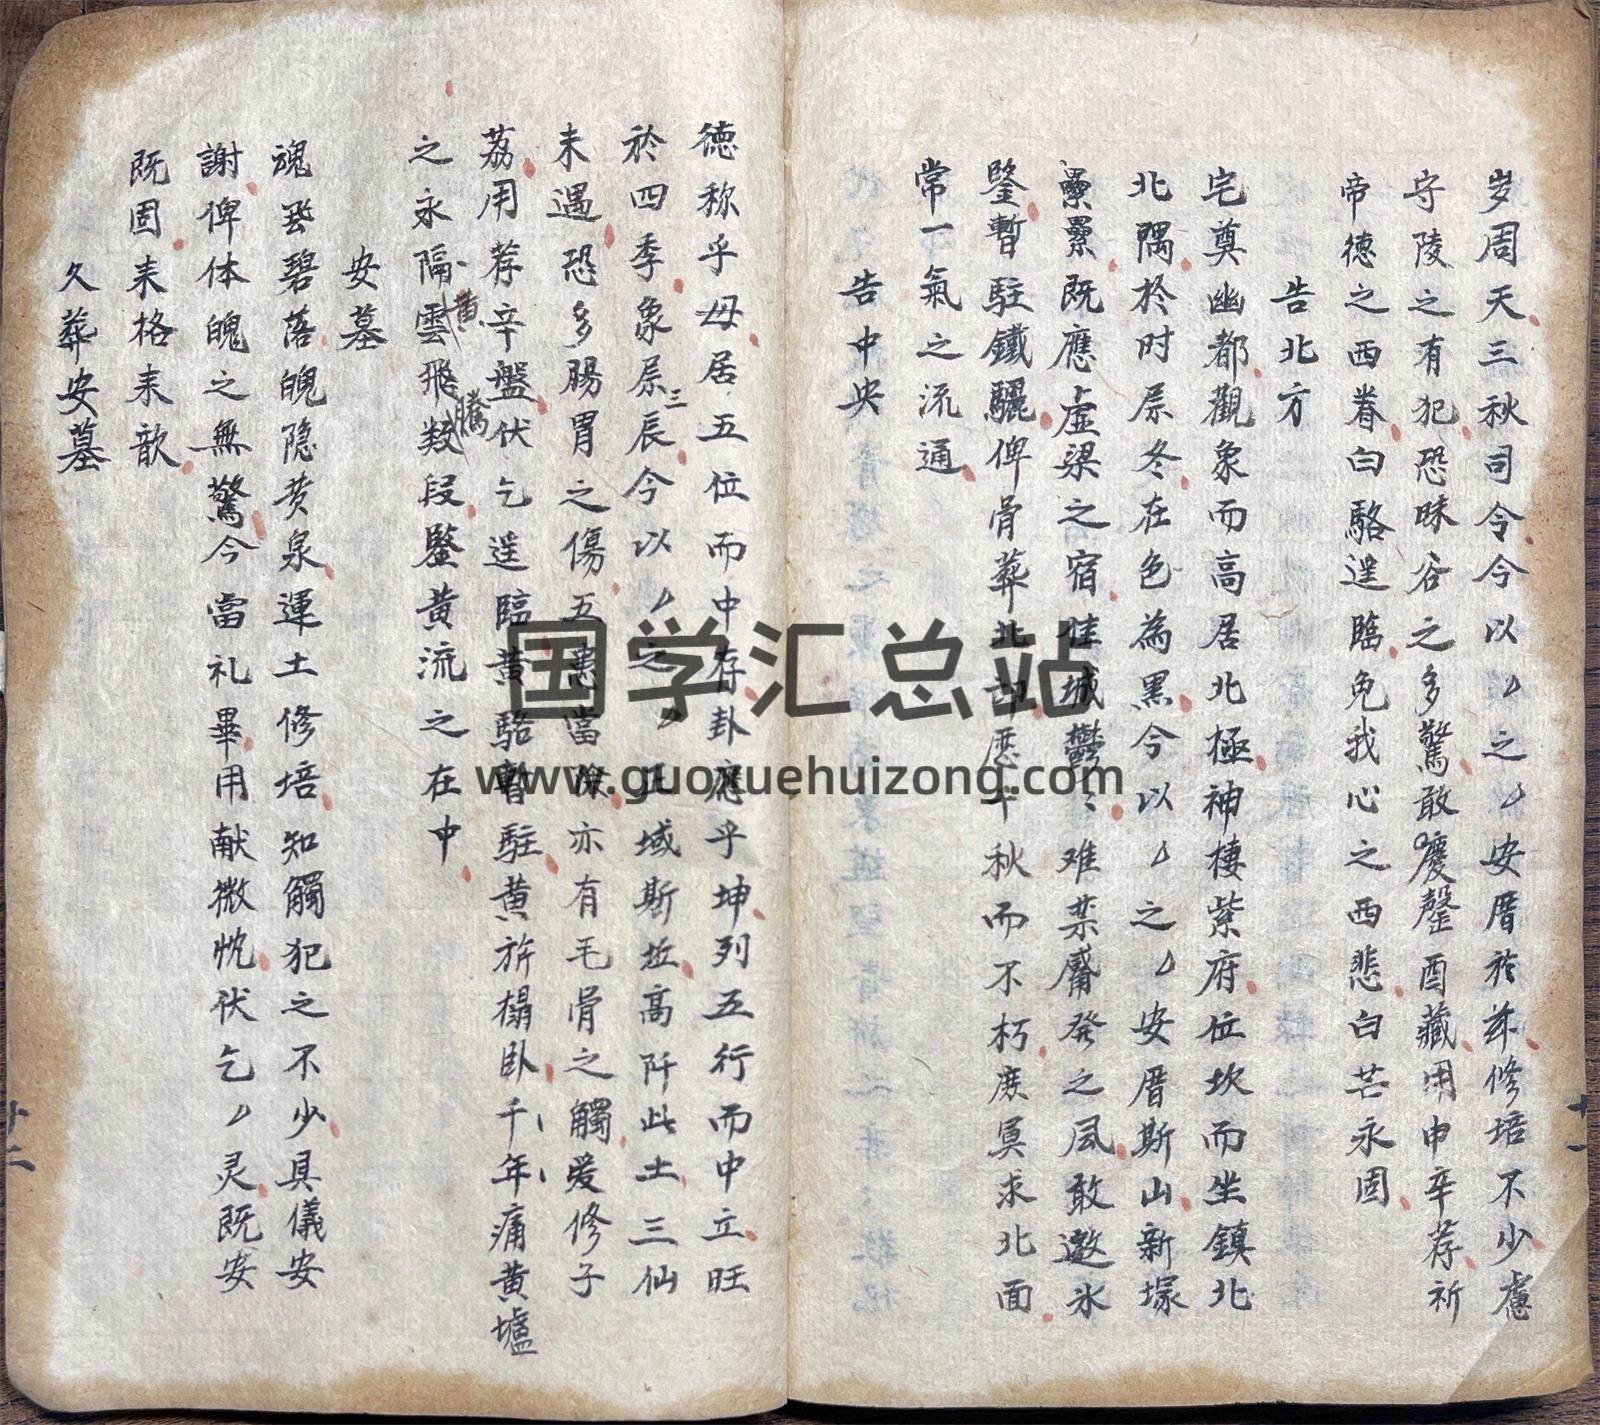 岁周天三秋司令今以〃之〃安厝於茲修培不少慮
守陵之有犯恐昧谷之多驚敢慶罄酉藏用申辛荐祈
帝德之西眷白駱逞臨免我心之西悲白芒永固
告北方
宅奠幽都觀象而高居北極神棲紫府位坎而坐鎮北
北隅於时屆冬在色為黑今以〃之〃安厝斯山新塚
纍纍既應虛梁之宿佳城鬱〻难禁觱發之風敢邀氷
鑒暫駐鐵驪俾骨葬北邙歷千秋而不朽庶冥求北面
常一氣之流通
告中央
德称乎母居五位而中存卦應乎坤列五行而中立旺
於四季象屆三辰今以〃之〃正域斯坵高阡此土三仙
未遇恐多腸胃之傷五患當除亦有毛骨之觸爰修子
荔用荐辛盤伏乞逞臨黄駱暫駐黄旂榻臥千年痛黄壚
之永隔黄雲飛騰数段鑒黄流之在中
安墓
魂昇碧落魄隐黄泉運土修培知觸犯之不少具儀安
謝俾体魄之無驚今當礼畢用献微忱伏乞〃灵既安
既固来格来歆
久葬安墓
十一
十二
国学汇总站
www.guoxuehuizong.com